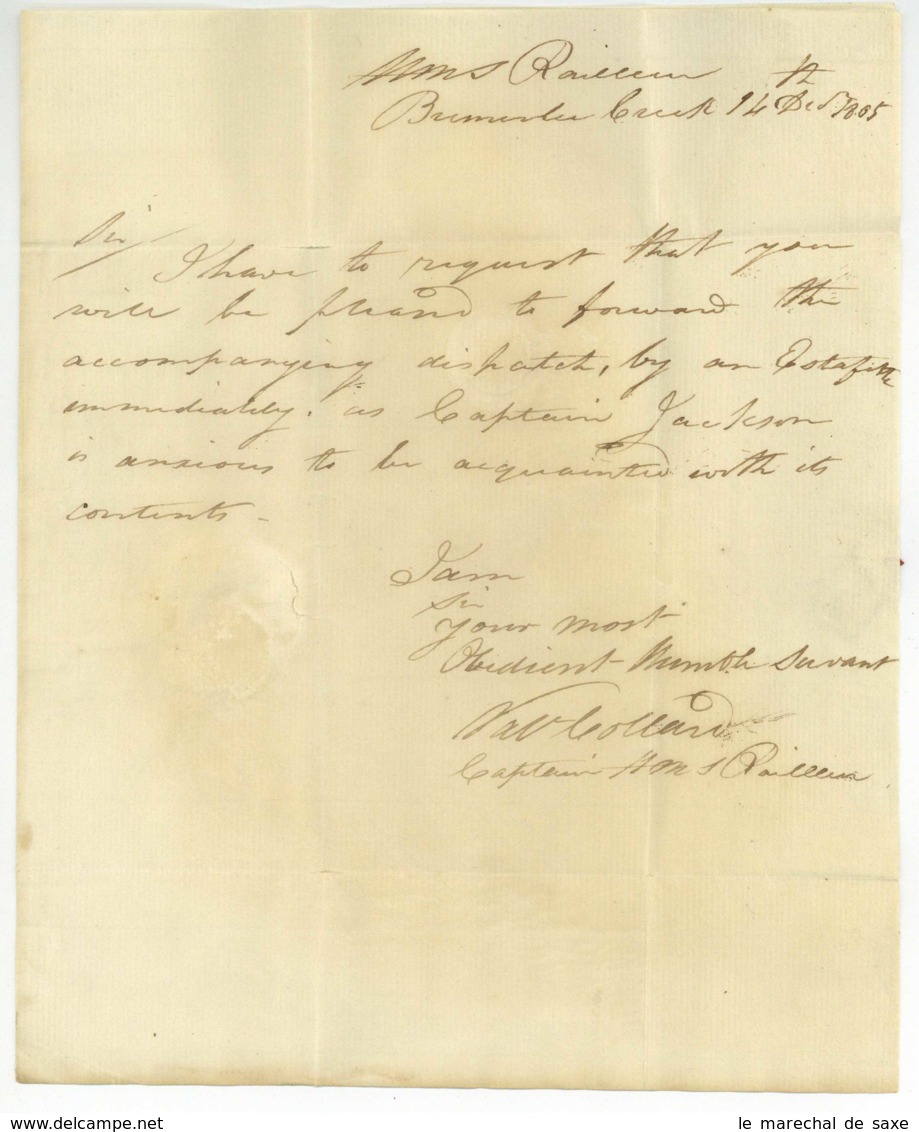 HMS Railleur
Bremerlee Creek 14th Decr 1805
Sir/
I have to request that you
will be pleased to forward the
accompanying dispatch, by an Estafette
immediately. as Captain Jackson
is anxious to be acquainted with its
contents -
I am
Sir
your most
Obedient Humble Servant
Val Collard
Captain HMS Railleur
www.delcampe.net
le marechal de saxe